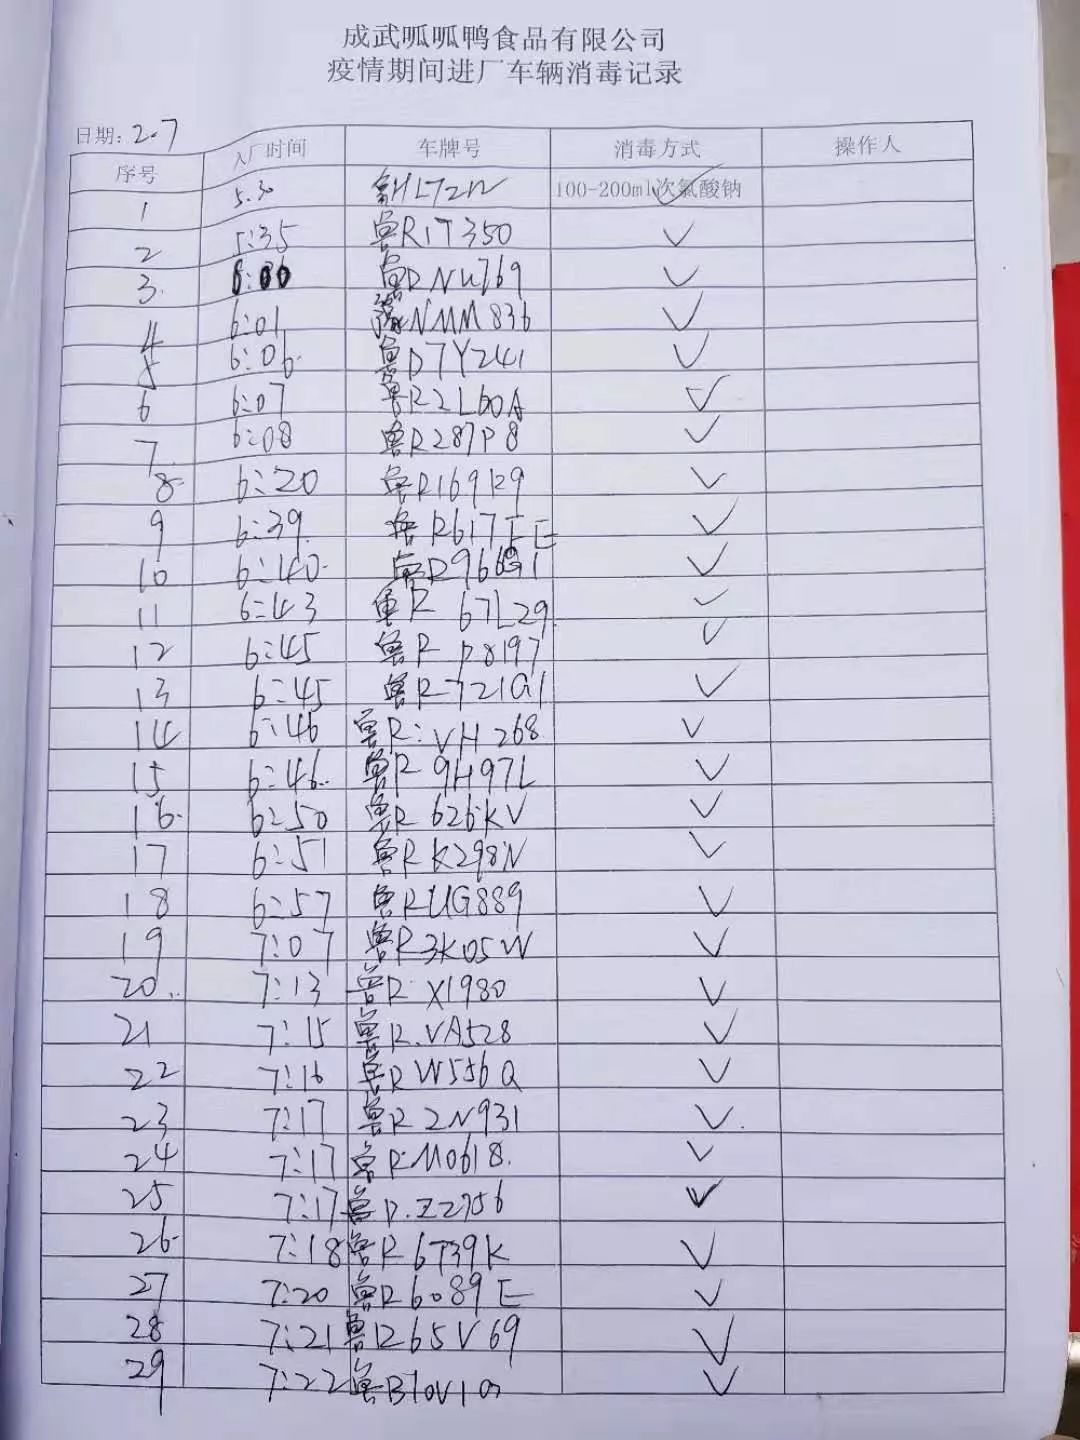 成武呱呱鸭食品有限公司
疫情期间进厂车辆消毒记录
日期: 2.7
序号 入厂时间 车牌号 消毒方式 操作人
1 5.30 100-200ml次氯酸钠
2 5:35 鲁R1T350 ✓
3. 6:06 ✓
4 6:01 豫NMM836 ✓
5 6:06. 鲁D7Y241 ✓
6 6:07 鲁R2L60A ✓
7 6:08 鲁R287P8 ✓
8 6:20 鲁R169R9 ✓
9 6:39. 鲁R617EE ✓
10 6:40. ✓
11 6:43 鲁R 67L29 ✓
12 6:45 鲁R P8197 ✓
13 6:45 鲁R721G1 ✓
14 6:46 鲁R:VH268 ✓
15 6:46. 鲁R 9H97L ✓
16. 6:50 鲁R 626KV ✓
17 6:51 鲁RK298N ✓
18 6:57 鲁RUG889 ✓
19 7:07 鲁R3K05W ✓
20 7:13 鲁R X1980 ✓
21 7:15 鲁R.VA528 ✓
22 7:16 鲁RW556Q ✓
23 7:17 鲁R2N931 ✓
24 7:17 鲁R.M0618. ✓
25 7:17 ✓
26 7:18 鲁R6T39K ✓
27 7:20 鲁R6089E ✓
28 7:21 鲁R65V69 ✓
29 7:22 ✓